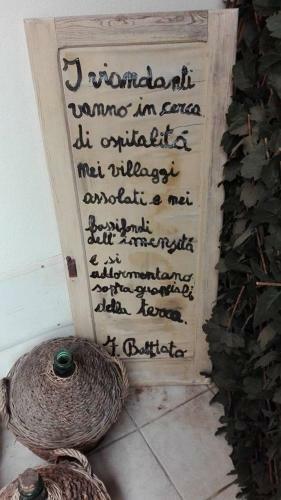 I viandanti
vanno in cerca
di ospitalitá
nei villaggi
assolati e nei
bassifondi
dell'imensitá
e si
addormentano
sopra guanciali
della terra.
F. Battiato